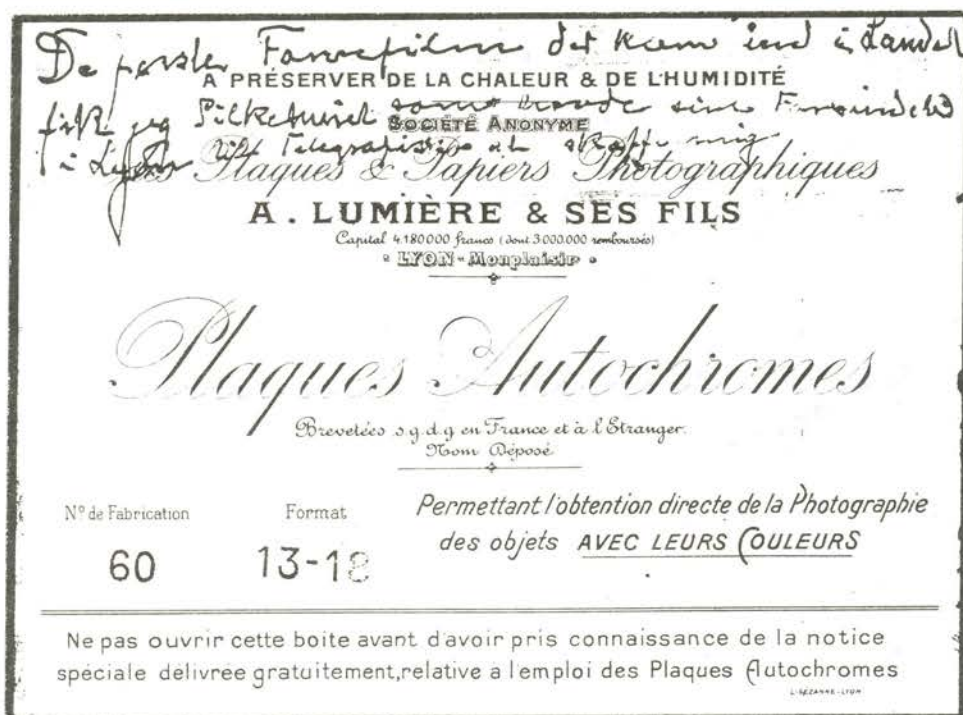 De første Farvefilm der kom ind i Landet
A PRÉSERVER DE LA CHALEUR & DE L'HUMIDITÉ
fik jeg
SOCIÉTÉ ANONYME
i Lyon Telegrafiske at skaffe mig
des Plaques & Papiers Photographiques
A. LUMIÈRE & SES FILS
Capital 4.180000 francs (dont 3.000.000 remboursés)
LYON-Monplaisir
Plaques Autochromes
Brevetées s.g.d.g en France et à l'Étranger.
Nom Déposé
Nº de Fabrication Format Permettant l'obtention directe de la Photographie
60 13-18 des objets AVEC LEURS COULEURS
Ne pas ouvrir cette boite avant d'avoir pris connaissance de la notice
spéciale délivrée gratuitement, relative à l'emploi des Plaques Autochromes
L. SÉZANNE-LYON